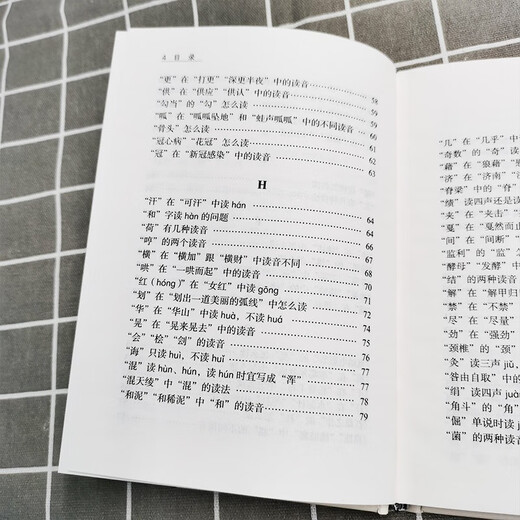 4 目 录
“更”在“打更”“深更半夜”中的读音 …… 58
“供”在“供应”“供认”中的读音 …… 59
“勾当”的“勾”怎么读 …… 59
“呱”在“呱呱坠地”和“蛙声呱呱”中的不同读音 …… 60
“骨头”怎么读 …… 61
“冠心病”“花冠”怎么读 …… 62
“冠”在“新冠感染”中的读音 …… 63
H
“汗”在“可汗”中读 hán …… 64
“和”字读 hàn 的问题 …… 64
“荷”有几种读音 …… 67
“哼”的两个读音 …… 68
“横”在“横加”跟“横财”中读音不同 …… 69
“哄”在“一哄而起”中的读音 …… 70
“红（hóng）”在“女红”中读 gōng …… 71
“划”在“划出一道美丽的弧线”中怎么读 …… 72
“华”在“华山”中读 huà，不读 huá …… 74
“晃”在“晃来晃去”中的读音 …… 75
“会”“桧”“刽”的读音 …… 76
“诲”只读 huì，不读 huǐ …… 77
“混”读 hùn、hún，读 hún 时宜写成“浑” …… 77
“混天绫”中“混”的读法 …… 78
“和泥”“和稀泥”中“和”的读音 …… 79
“几”在“几乎”中
“奇数”的“奇”读
“藉”在“狼藉”
“济”在“济南”
“脊梁”中的“脊”
“绩”读四声还是读
“夹”在“夹击”
“戛”在“戛然而止
“间”在“间断”
“监利”的“监”怎
“酵母”“发酵”中
“结”的两种读音
“解”在“解甲归
“禁”在“不禁”
“尽”在“尽量”
“劲”在“强劲”
“颈椎”的“颈”
“灸”读三声 jiǔ，
“咎由自取”中的
“绢”读四声 juàn
“角斗”的“角”
“倔”单说时读
“菌”的两种读音